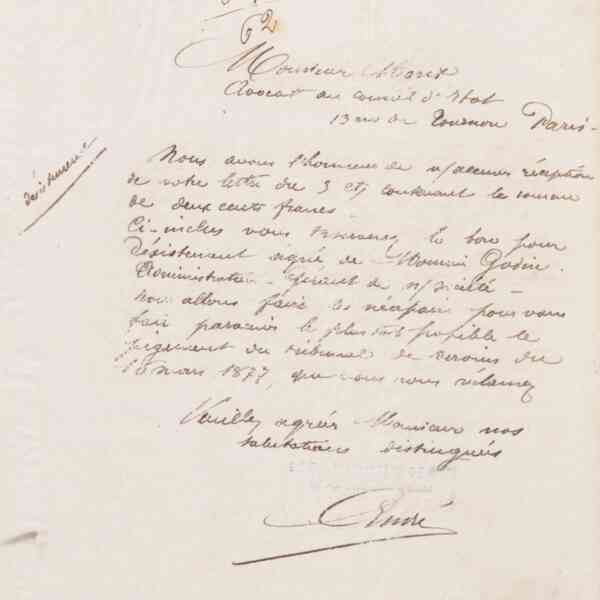 62
Monsieur
Avocat au conseil d'Etat
13 rue de Tournon Paris-
désistement
Nous avons l'honneur de v/accuser réception
de votre lettre du 3 ct, contenant la somme
de deux cents francs-
Ci-inclus vous trouverez le bon pour
Désistement signé de Monsieur Godin.
Administrateur-Gérant de n/société-
Nous allons faire le nécessaire pour vous
faire parvenir le plus tôt possible le
jugement du tribunal de Vervins du
16 mars 1877, que vous nous réclamez
Veuillez agréer Monsieur nos
salutations distinguées
André